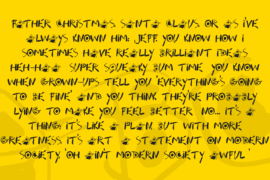 FATHER CHRISTMAS. SANTA CLAUS. OR AS I'VE
ALWAYS KNOWN HIM: JEFF. YOU KNOW HOW I
SOMETIMES HAVE REALLY BRILLIANT IDEAS
HEH-HAA SUPER SQUEAKY BUM TIME. YOU KNOW
WHEN GROWN-UPS TELL YOU 'EVERYTHING'S GOING
TO BE FINE' AND YOU THINK THEY'RE PROBABLY
LYING TO MAKE YOU FEEL BETTER? NO... IT'S A
THING. IT'S LIKE A PLAN, BUT WITH MORE
GREATNESS. IT'S ART. A STATEMENT ON MODERN
SOCIETY, 'OH AIN'T MODERN SOCIETY AWFUL'